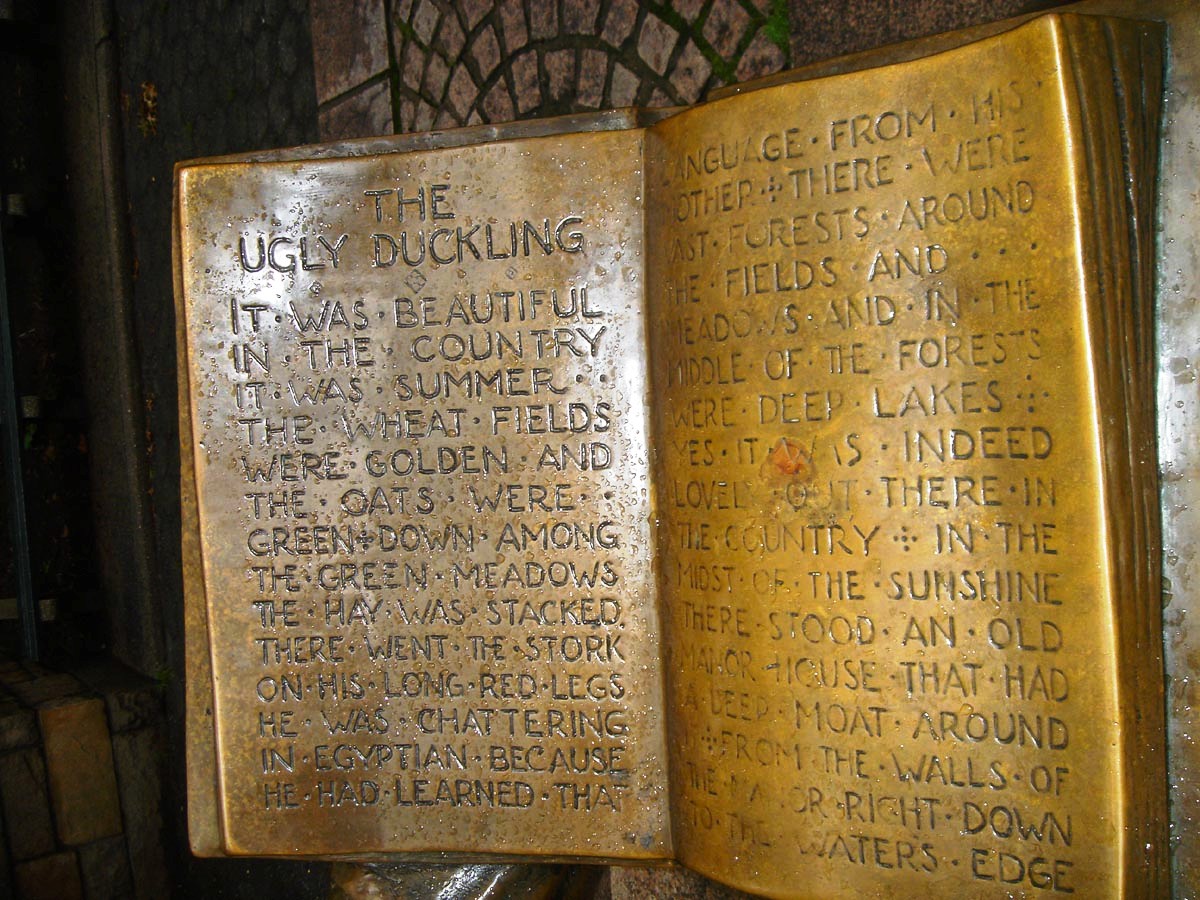 THE
UGLY DUCKLING
IT · WAS · BEAUTIFUL
IN · THE · COUNTRY
IT · WAS · SUMMER · ·
THE · WHEAT · FIELDS
WERE · GOLDEN · AND
THE · OATS · WERE · ·
GREEN ⁘ DOWN · AMONG
THE · GREEN · MEADOWS
THE · HAY · WAS · STACKED.
THERE · WENT · THE · STORK
ON · HIS · LONG · RED · LEGS
HE · WAS · CHATTERING
IN · EGYPTIAN · BECAUSE
HE · HAD · LEARNED · THAT
LANGUAGE · FROM · HIS
MOTHER ⁘ THERE · WERE
VAST · FORESTS · AROUND
THE · FIELDS · AND · · ·
MEADOWS · AND · IN · THE
MIDDLE · OF · THE · FORESTS
WERE · DEEP · LAKES ⁘
YES · IT · WAS · INDEED
LOVELY · OUT · THERE · IN
THE · COUNTRY ⁘ IN · THE
MIDST · OF · THE · SUNSHINE
THERE · STOOD · AN · OLD
MANOR · HOUSE · THAT · HAD
A · DEEP · MOAT · AROUND
IT ⁘ FROM · THE · WALLS · OF
THE · MANOR · RIGHT · DOWN
TO · THE · WATERS · EDGE